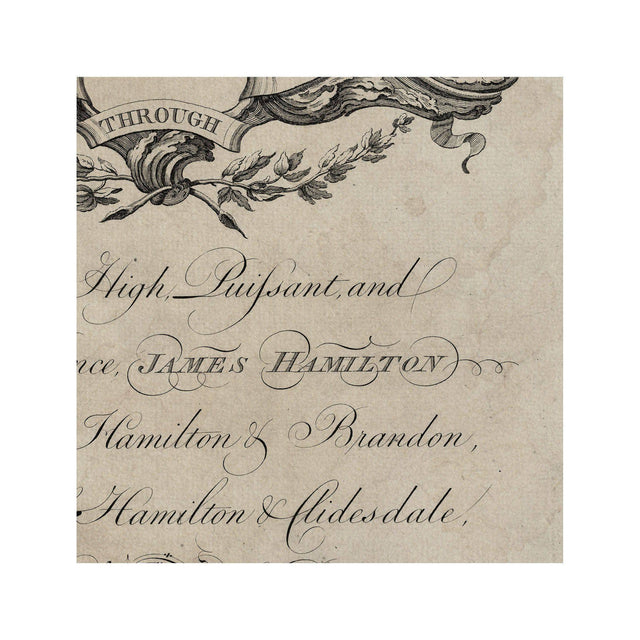 THROUGH
High, Puiſsant, and
nce, JAMES HAMILTON
Hamilton & Brandon,
Hamilton & Clidesdale,